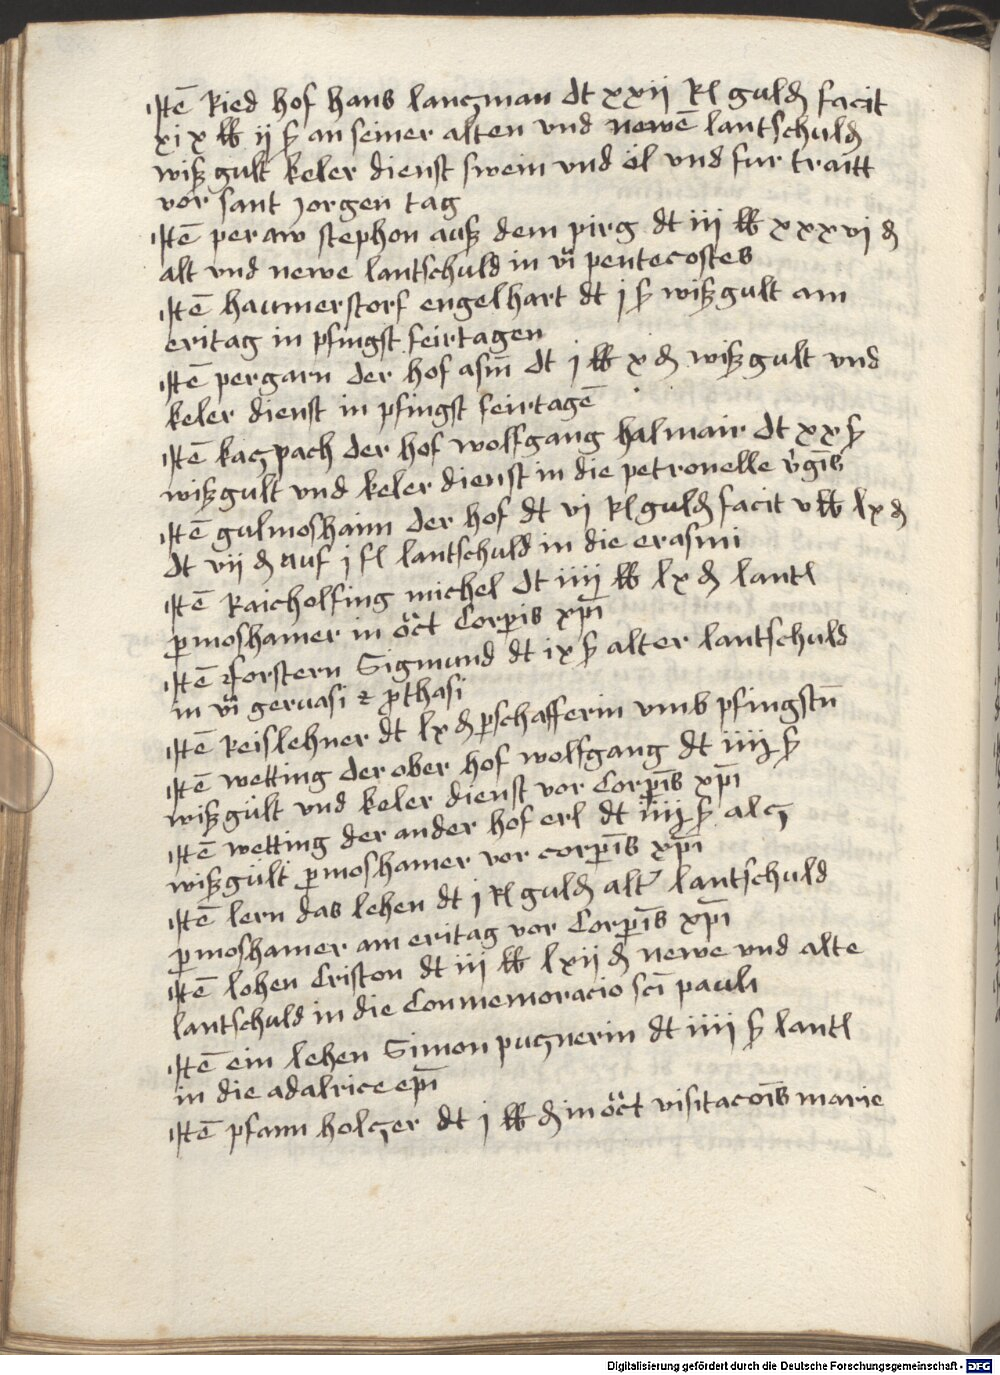 Itē Ried hof hans lanczman dt xxii Rl guldꝭ facit
xix ℔ ij ß an seiner alten vnd newē lantschuldꝭ
wißgult keler dienst swein vnd öl vnd fur traitt
vor sant Jorgen tag
Itē peraw stephon auß dem pirg dt iii ℔ xxxvi ₰
alt vnd newe lantschuld in vĩ pentecostes
Itē haumerstorf engelhart dt j ß wißgult am
eritag in pfingst feirtagen
Itē pergarn der hof asm̄ dt j ℔ x ₰ wißgult vnd
keler dienst in pfingst feirtagē
Itē kaczpach der hof wolfgang halmair dt xx ß
wißgult vnd keler dienst in die petronelle v̓gīs
Itē gulmoshaim der hof dt vi Rl guldꝭ facit v ℔ lx ₰
dt vii ₰ auf j fl lantschuld in die erasmi
Itē Raicholfing michel dt iiij ℔ lx ₰ lantl
ꝑ moshamer in oc̄t Corꝑis xp̄i
Itē forstern Sigmund dt ix ß alter lantschuld
in vĩ geruasi ⁊ ꝓthasi
Itē Reislehner dt lx ₰ ꝑ schafferin vmb pfingstn̄
Itē wetting der ober hof wolfgang dt iiij ß
wißgült vnd keler dienst vor Corꝑīs xp̄i
Itē wetting der ander hof erl dt iiij ß alcz
wißgült ꝑ moshamer vor corꝑīs xp̄i
Itē lern das lehen dt j Rl guldꝭ alt̓ lantschuld
ꝑ moshamer am eritag vor Corꝑīs xp̄i
Itē lohen Criston dt iii ℔ lxii ₰ newe vnd alte
lantschuld in die Conmemoracio sc̄i pauli
Itē ein lehen Simon pucznerin dt iiii ß lantl
in die adalrice ep̄i
Itē pfann holczer dt j ℔ ₰ in oc̄t visitacoīs marie
Digitalisierung gefördert durch die Deutsche Forschungsgemeinschaft - DFG